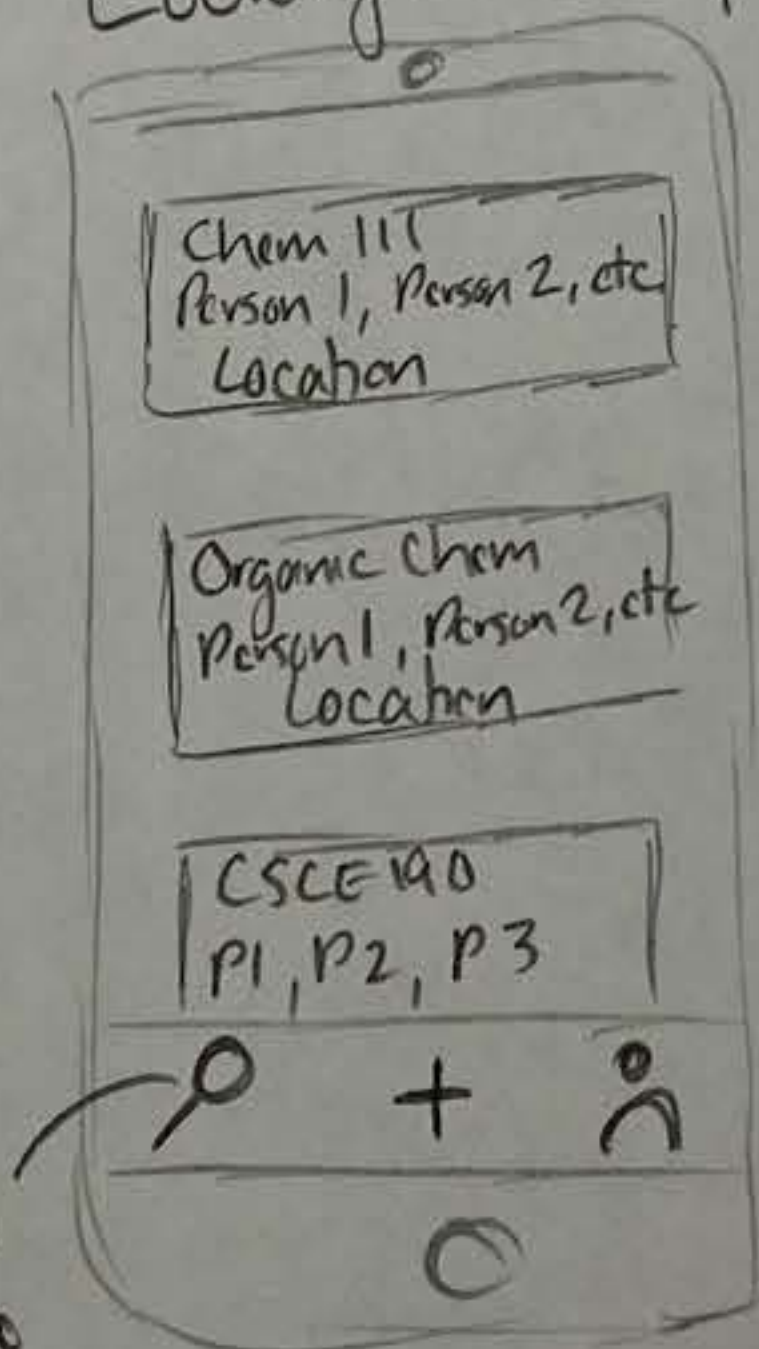 Chem 111
Person 1, Person 2, etc
Location
Organic Chem
Person 1, Person 2, etc
Location
CSCE 190
P1, P2, P3